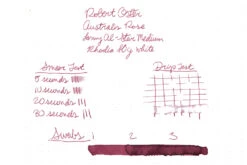 Robert Oster
Australis Rose
Lamy Al-Star Medium
Rhodia 80g White
Smear Test
Drip Test
5 seconds
10 seconds
20 seconds
30 seconds
Swabs 1 2 3